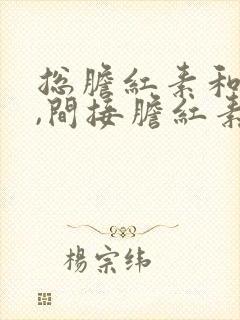 总膽紅素和
,間接膽紅素
楊宗纬